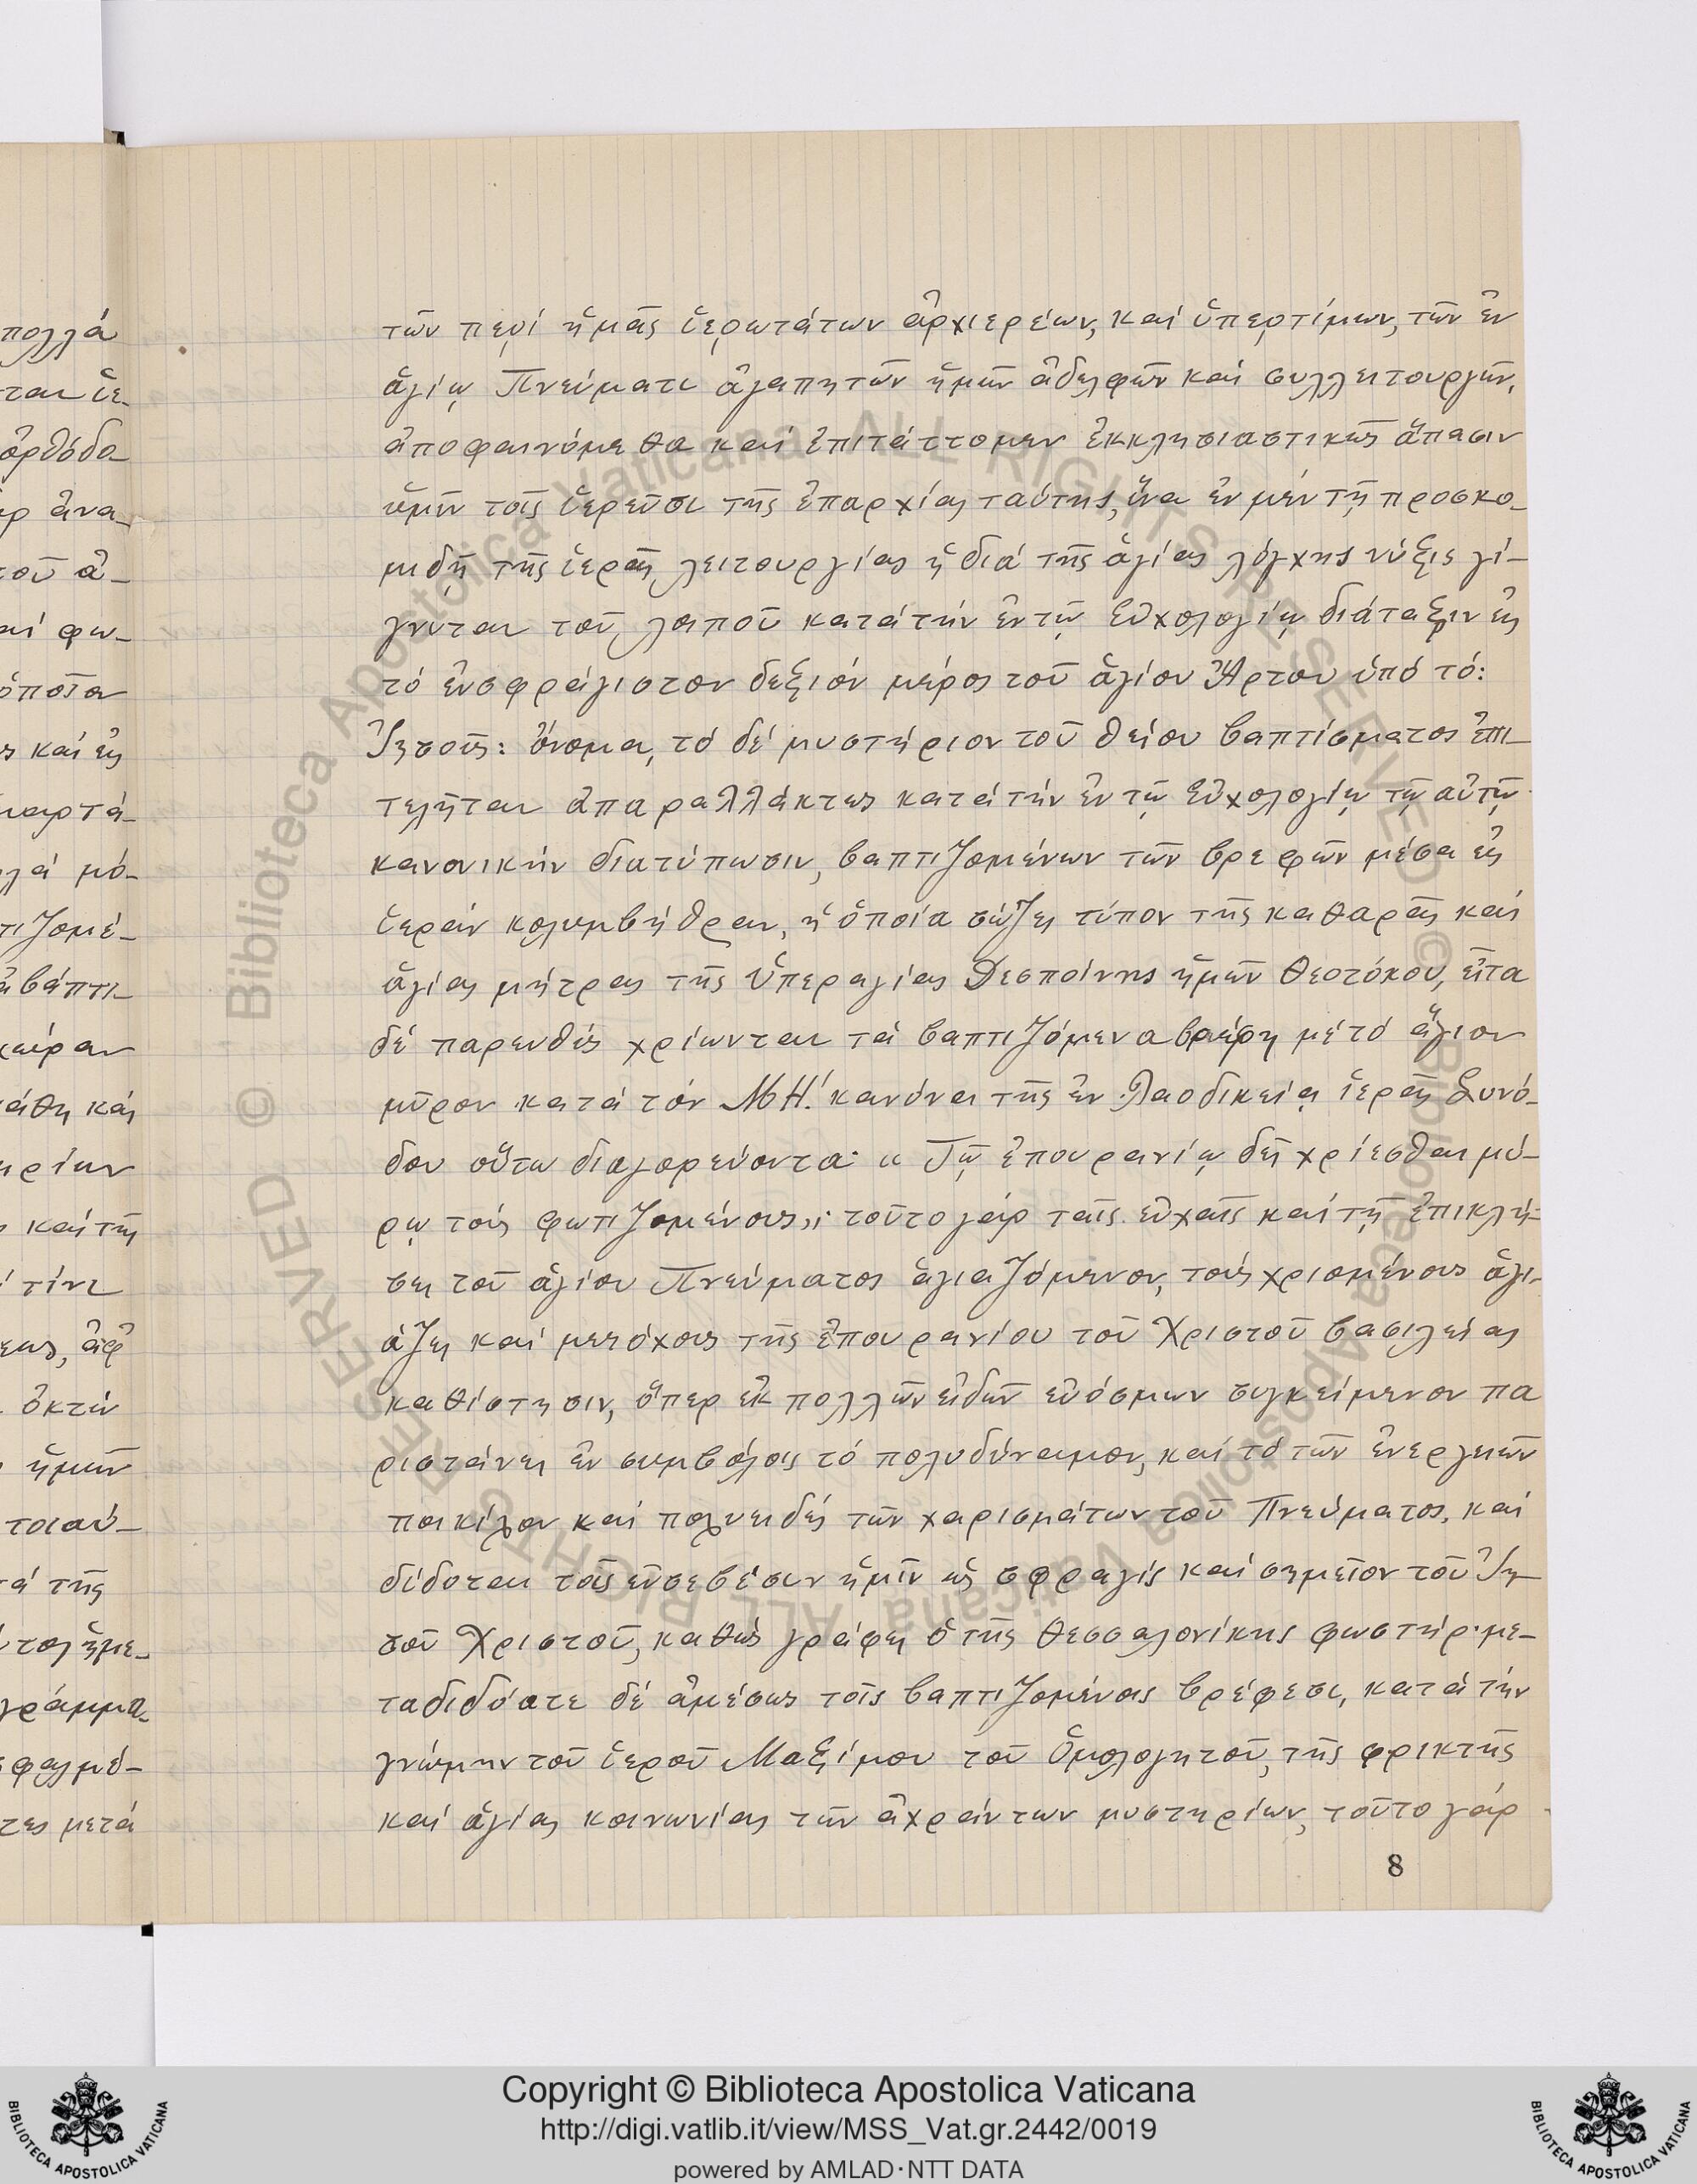 τῶν περί ἡμᾶς ἱερωτάτων ἀρχιερέων, καί ὑπερτίμων, τῶν ἐν
ἁγίῳ Πνεύματι ἀγαπητῶν ἡμῶν ἀδελφῶν καί συλλειτουργῶν,
ἀποφαινόμεθα καί ἐπιτάττομεν ἐκκλησιαστικῶς ἅπασιν
ὑμῖν τοῖς ἱερεῦσι τῆς ἐπαρχίας ταύτης, ἵνα ἐν μέν τῇ προσκο-
μιδῇ τῆς ἱερᾶς λειτουργίας ἡ διά τῆς ἁγίας λόγχης νύξις γί-
γνεται τοῦ λοιποῦ κατά τήν ἐν τῷ Εὐχολογίῳ διάταξιν εἰς
τό ἐνσφράγιστον δεξιόν μέρος τοῦ ἁγίου Ἄρτου ὑπό τό:
Ἰησοῦς: ὄνομα, τό δέ μυστήριον τοῦ θείου βαπτίσματος ἐπι-
τελῆται ἀπαραλλάκτως κατά τήν ἐν τῷ Εὐχολογίῳ τῷ αὐτῷ
κανονικήν διατύπωσιν, βαπτιζομένων τῶν βρεφῶν μέσα εἰς
ἱεράν κολυμβήθραν, ἡ ὁποία σώζει τύπον τῆς καθαρᾶς καί
ἁγίας μήτρας τῆς Ὑπεραγίας Δεσποίνης ἡμῶν Θεοτόκου, εἶτα
δέ παρευθύς χρίωνται τά βαπτιζόμενα βρέφη μέ τό ἅγιον
μῦρον κατά τόν ΜΗ΄. κανόνα τῆς ἐν Λαοδικείᾳ ἱερᾶς Συνό-
δου οὕτω διαγορεύοντα· « Τῷ ἐπουρανίῳ δεῖ χρίεσθαι μύ-
ρῳ τούς φωτιζομένους»· τοῦτο γάρ ταῖς εὐχαῖς καί τῇ ἐπικλή-
σει τοῦ ἁγίου Πνεύματος ἁγιαζόμενον, τούς χρισμένους ἁγι-
άζει καί μετόχους τῆς ἐπουρανίου τοῦ Χριστοῦ βασιλείας
καθίστησιν, ὅπερ ἐκ πολλῶν εἰδῶν εὐόσμων συγκείμενον πα
ριστάνει ἐν συμβόλοις τό πολυδύναμον, καί τό τῶν ἐνεργειῶν
ποικίλον καί πολυειδές τῶν χαρισμάτων τοῦ Πνεύματος, καί
δίδοται τοῖς εὐσεβέσιν ἡμῖν ὡς σφραγίς καί σημεῖον τοῦ Ἰη-
σοῦ Χριστοῦ, καθώς γράφει ὁ τῆς Θεσσαλονίκης φωστήρ· με-
ταδιδόατε δέ ἀμέσως τοῖς βαπτιζομένοις βρέφεσι, κατά τήν
γνώμην τοῦ ἱεροῦ Μαξίμου τοῦ Ὁμολογητοῦ, τῆς φρικτῆς
καί ἁγίας κοινωνίας τῶν ἀχράντων μυστηρίων, τοῦτο γάρ
8
Copyright © Biblioteca Apostolica Vaticana
http://digi.vatlib.it/view/MSS_Vat.gr.2442/0019
powered by AMLAD·NTT DATA